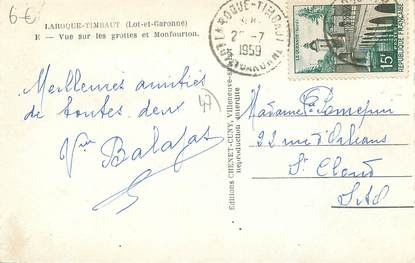 6€
LAROQUE-TIMBAUT (Lot-et-Garonne)
E - Vue sur les grottes et Monfourton.
LAROQUE-TIMBAUT
-7
1959
LOT-ET-GARONNE
15F
REPUBLIQUE FRANÇAISE
Meilleures amitiés
de toutes deux
Balajat
Editions CHENET-CUNY, Villeneuve-s
Reproduction interdite
Madame
22 rue d'Orléans
St Cloud
S&O